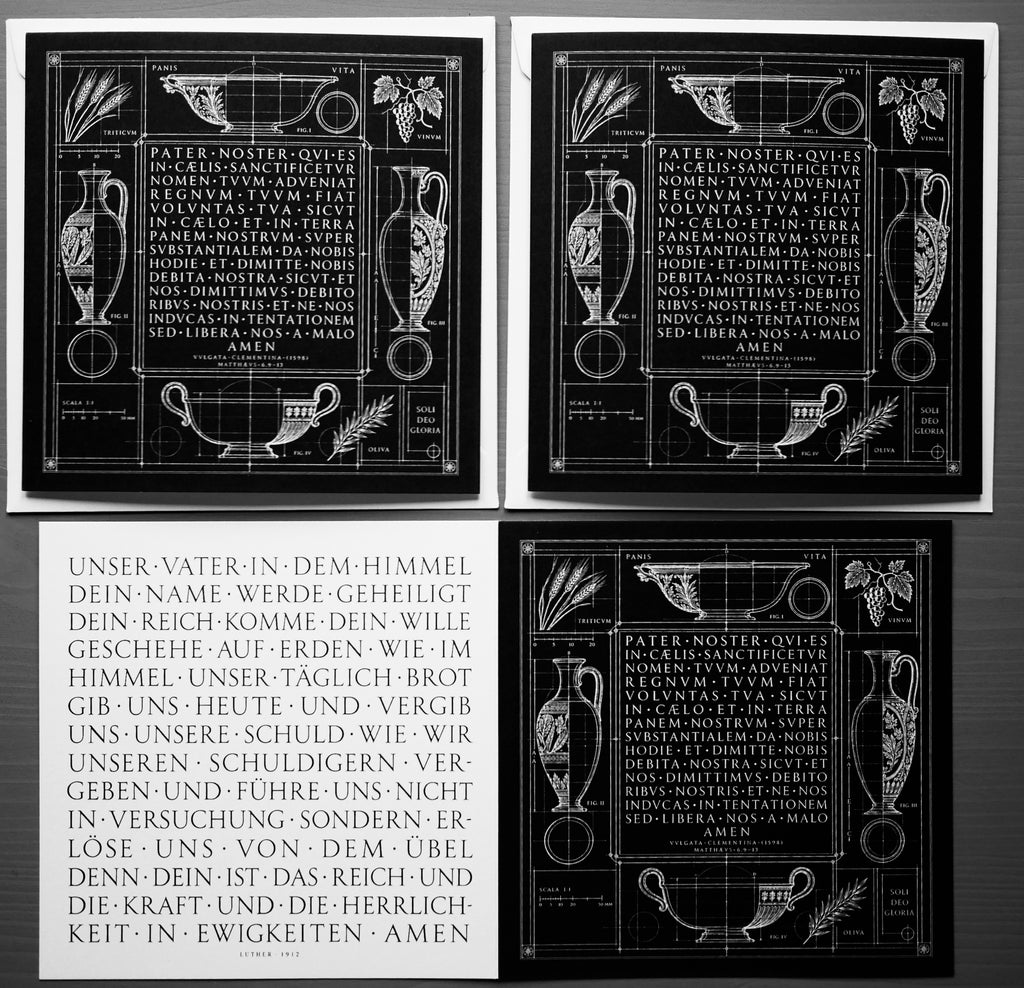 PANIS
VITA
TRITICVM
FIG. I
VINVM
0 5 10 20
PATER · NOSTER · QVI · ES
IN · CÆLIS · SANCTIFICETVR
NOMEN · TVVM · ADVENIAT
REGNVM · TVVM · FIAT
VOLVNTAS · TVA · SICVT
IN · CÆLO · ET · IN · TERRA
PANEM · NOSTRVM · SVPER
SVBSTANTIALEM · DA · NOBIS
HODIE · ET · DIMITTE · NOBIS
DEBITA · NOSTRA · SICVT · ET
NOS · DIMITTIMVS · DEBITO
RIBVS · NOSTRIS · ET · NE · NOS
INDVCAS · IN · TENTATIONEM
SED · LIBERA · NOS · A · MALO
AMEN
VVLGATA · CLEMENTINA · (1598)
MATTHÆVS · 6,9-13
FIG. II
FIG. III
SCALA 1:1
0 5 10 20 50 MM
FIG. IV
OLIVA
SOLI
DEO
GLORIA
PANIS
VITA
TRITICVM
FIG. I
VINVM
0 5 10 20
PATER · NOSTER · QVI · ES
IN · CÆLIS · SANCTIFICETVR
NOMEN · TVVM · ADVENIAT
REGNVM · TVVM · FIAT
VOLVNTAS · TVA · SICVT
IN · CÆLO · ET · IN · TERRA
PANEM · NOSTRVM · SVPER
SVBSTANTIALEM · DA · NOBIS
HODIE · ET · DIMITTE · NOBIS
DEBITA · NOSTRA · SICVT · ET
NOS · DIMITTIMVS · DEBITO
RIBVS · NOSTRIS · ET · NE · NOS
INDVCAS · IN · TENTATIONEM
SED · LIBERA · NOS · A · MALO
AMEN
VVLGATA · CLEMENTINA · (1598)
MATTHÆVS · 6,9-13
FIG. II
FIG. III
SCALA 1:1
0 5 10 20 50 MM
FIG. IV
OLIVA
SOLI
DEO
GLORIA
UNSER · VATER · IN · DEM · HIMMEL
DEIN · NAME · WERDE · GEHEILIGT
DEIN · REICH · KOMME · DEIN · WILLE
GESCHEHE · AUF · ERDEN · WIE · IM
HIMMEL · UNSER · TÄGLICH · BROT
GIB · UNS · HEUTE · UND · VERGIB
UNS · UNSERE · SCHULD · WIE · WIR
UNSEREN · SCHULDIGERN · VER-
GEBEN · UND · FÜHRE · UNS · NICHT
IN · VERSUCHUNG · SONDERN · ER-
LÖSE · UNS · VON · DEM · ÜBEL
DENN · DEIN · IST · DAS · REICH · UND
DIE · KRAFT · UND · DIE · HERRLICH-
KEIT · IN · EWIGKEITEN · AMEN
LUTHER · 1912
PANIS
VITA
TRITICVM
FIG. I
VINVM
0 5 10 20
PATER · NOSTER · QVI · ES
IN · CÆLIS · SANCTIFICETVR
NOMEN · TVVM · ADVENIAT
REGNVM · TVVM · FIAT
VOLVNTAS · TVA · SICVT
IN · CÆLO · ET · IN · TERRA
PANEM · NOSTRVM · SVPER
SVBSTANTIALEM · DA · NOBIS
HODIE · ET · DIMITTE · NOBIS
DEBITA · NOSTRA · SICVT · ET
NOS · DIMITTIMVS · DEBITO
RIBVS · NOSTRIS · ET · NE · NOS
INDVCAS · IN · TENTATIONEM
SED · LIBERA · NOS · A · MALO
AMEN
VVLGATA · CLEMENTINA · (1598)
MATTHÆVS · 6,9-13
FIG. II
FIG. III
SCALA 1:1
0 5 10 20 50 MM
FIG. IV
OLIVA
SOLI
DEO
GLORIA